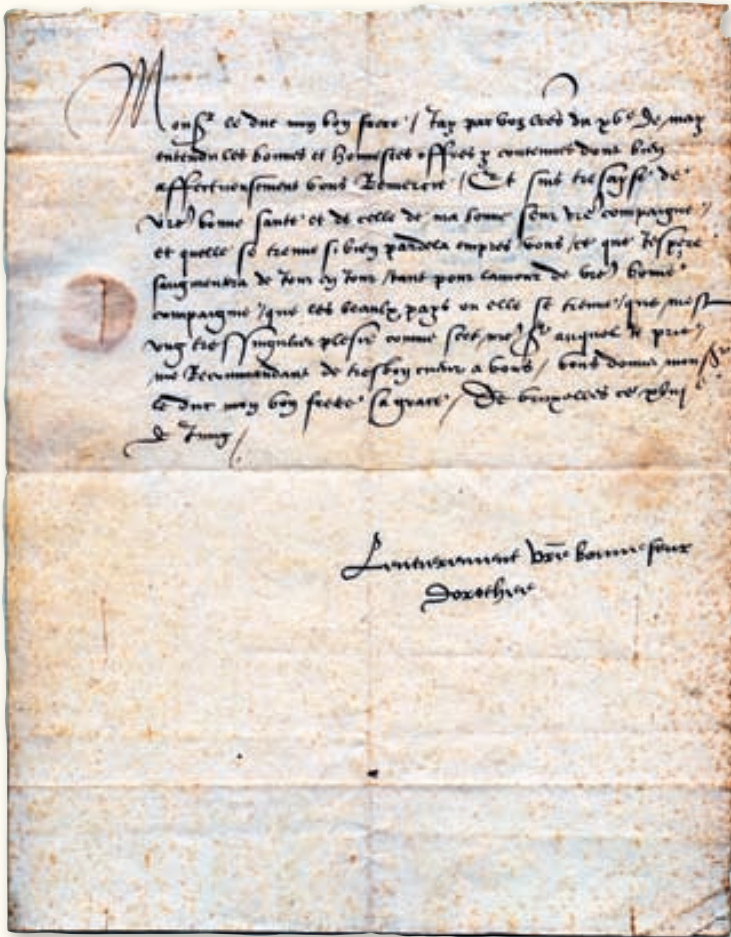 Mons^r le duc mon bon frere / Jay par voz l̃res du xv^e de may
entendu les bonnes et honnestes offres y contenues dont bien
affectueusement vous Remercie / Et suis tresayse de
vr̃e bonne sante et de celle de ma bonne seur vr̃e compaigne /
et quelle se treuve si bien pardela empres vous / ce que Jespere
saugmentra de Jour en Jour / tant pour lamour de vr̃e bonne
compaignie / que les beaulx pays ou elle se treuve / que mest
ung tressingulier plesir comme scet nr̃e s^r auquel Je prie /
me Recommandant de tresbon cueur a vous / vous donner mons^r
le duc mon bon frere sa grace / De bruxelles ce
de Jung /
vr̃e bonne seur
Dorothee